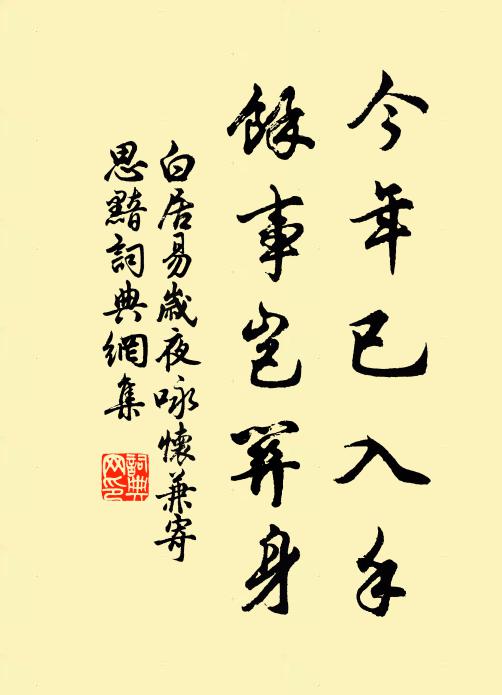 今年已入手
餘事豈關身
白居易歲夜咏懷兼寄
思黯詞典網集
詞典
网印